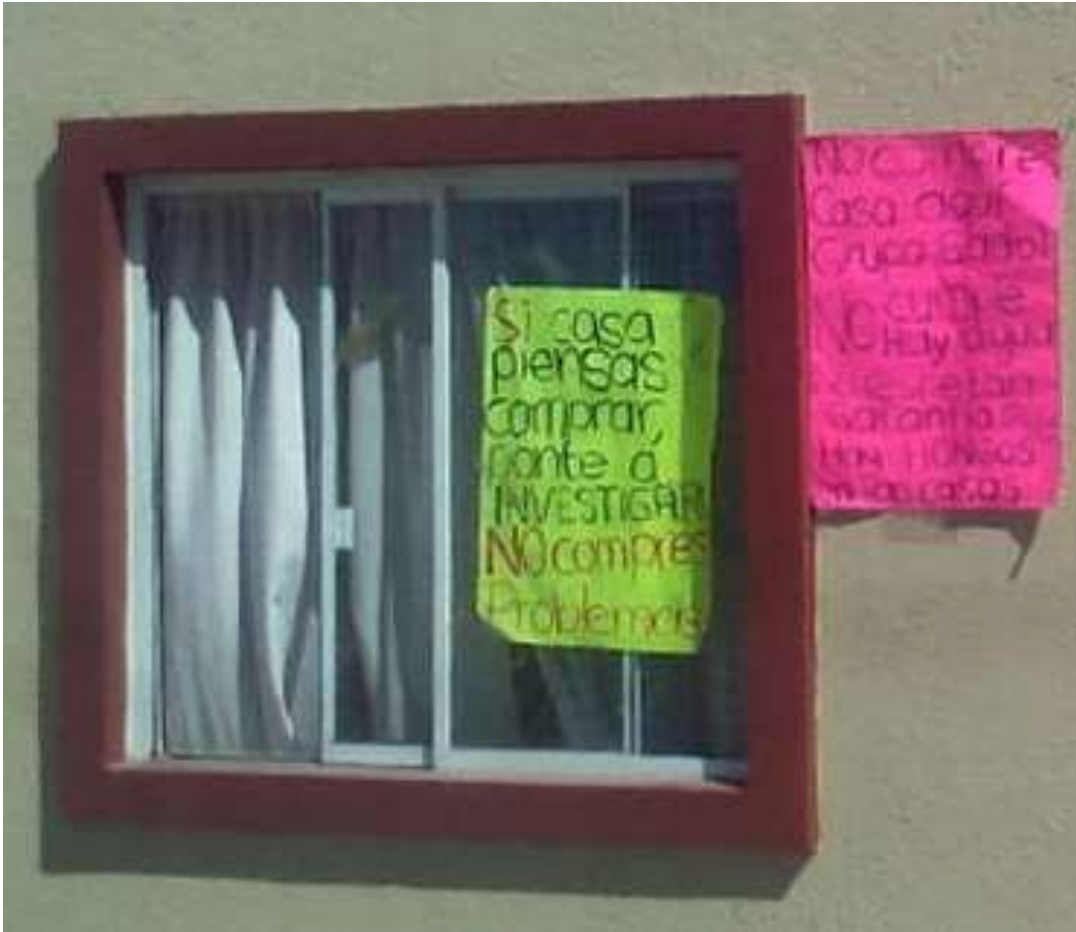 Si casa
piensas
comprar,
ponte a
INVESTIGAR
NO compres
Problemas
No compre
Casa aquí
Grupo
No cumple
NO Hay agua
Hay HONGOS
en las casas